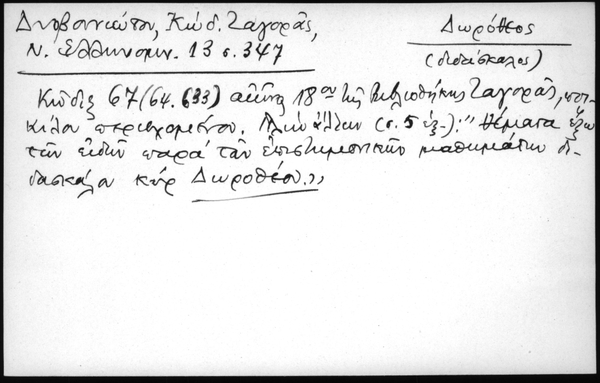 Δυοβουνιώτου, Κώδ. Ζαγορᾶς,
Ν. Ἑλληνομν. 13 σ. 347
Δωρόθεος
(διδάσκαλος)
Κῶδιξ 67 (64. 633) αἰῶνος 18ου τῆς βιβλιοθήκης Ζαγορᾶς, ποι-
κίλου περιεχομένου. Πλὴν ἄλλων (σ. 5 ἑξ.): "Θέματα ἔξω
τῶν εἰδῶν παρὰ τῶν ἐπιστημονικῶν μαθημάτων δι-
δασκάλου κὺρ Δωροθέου."